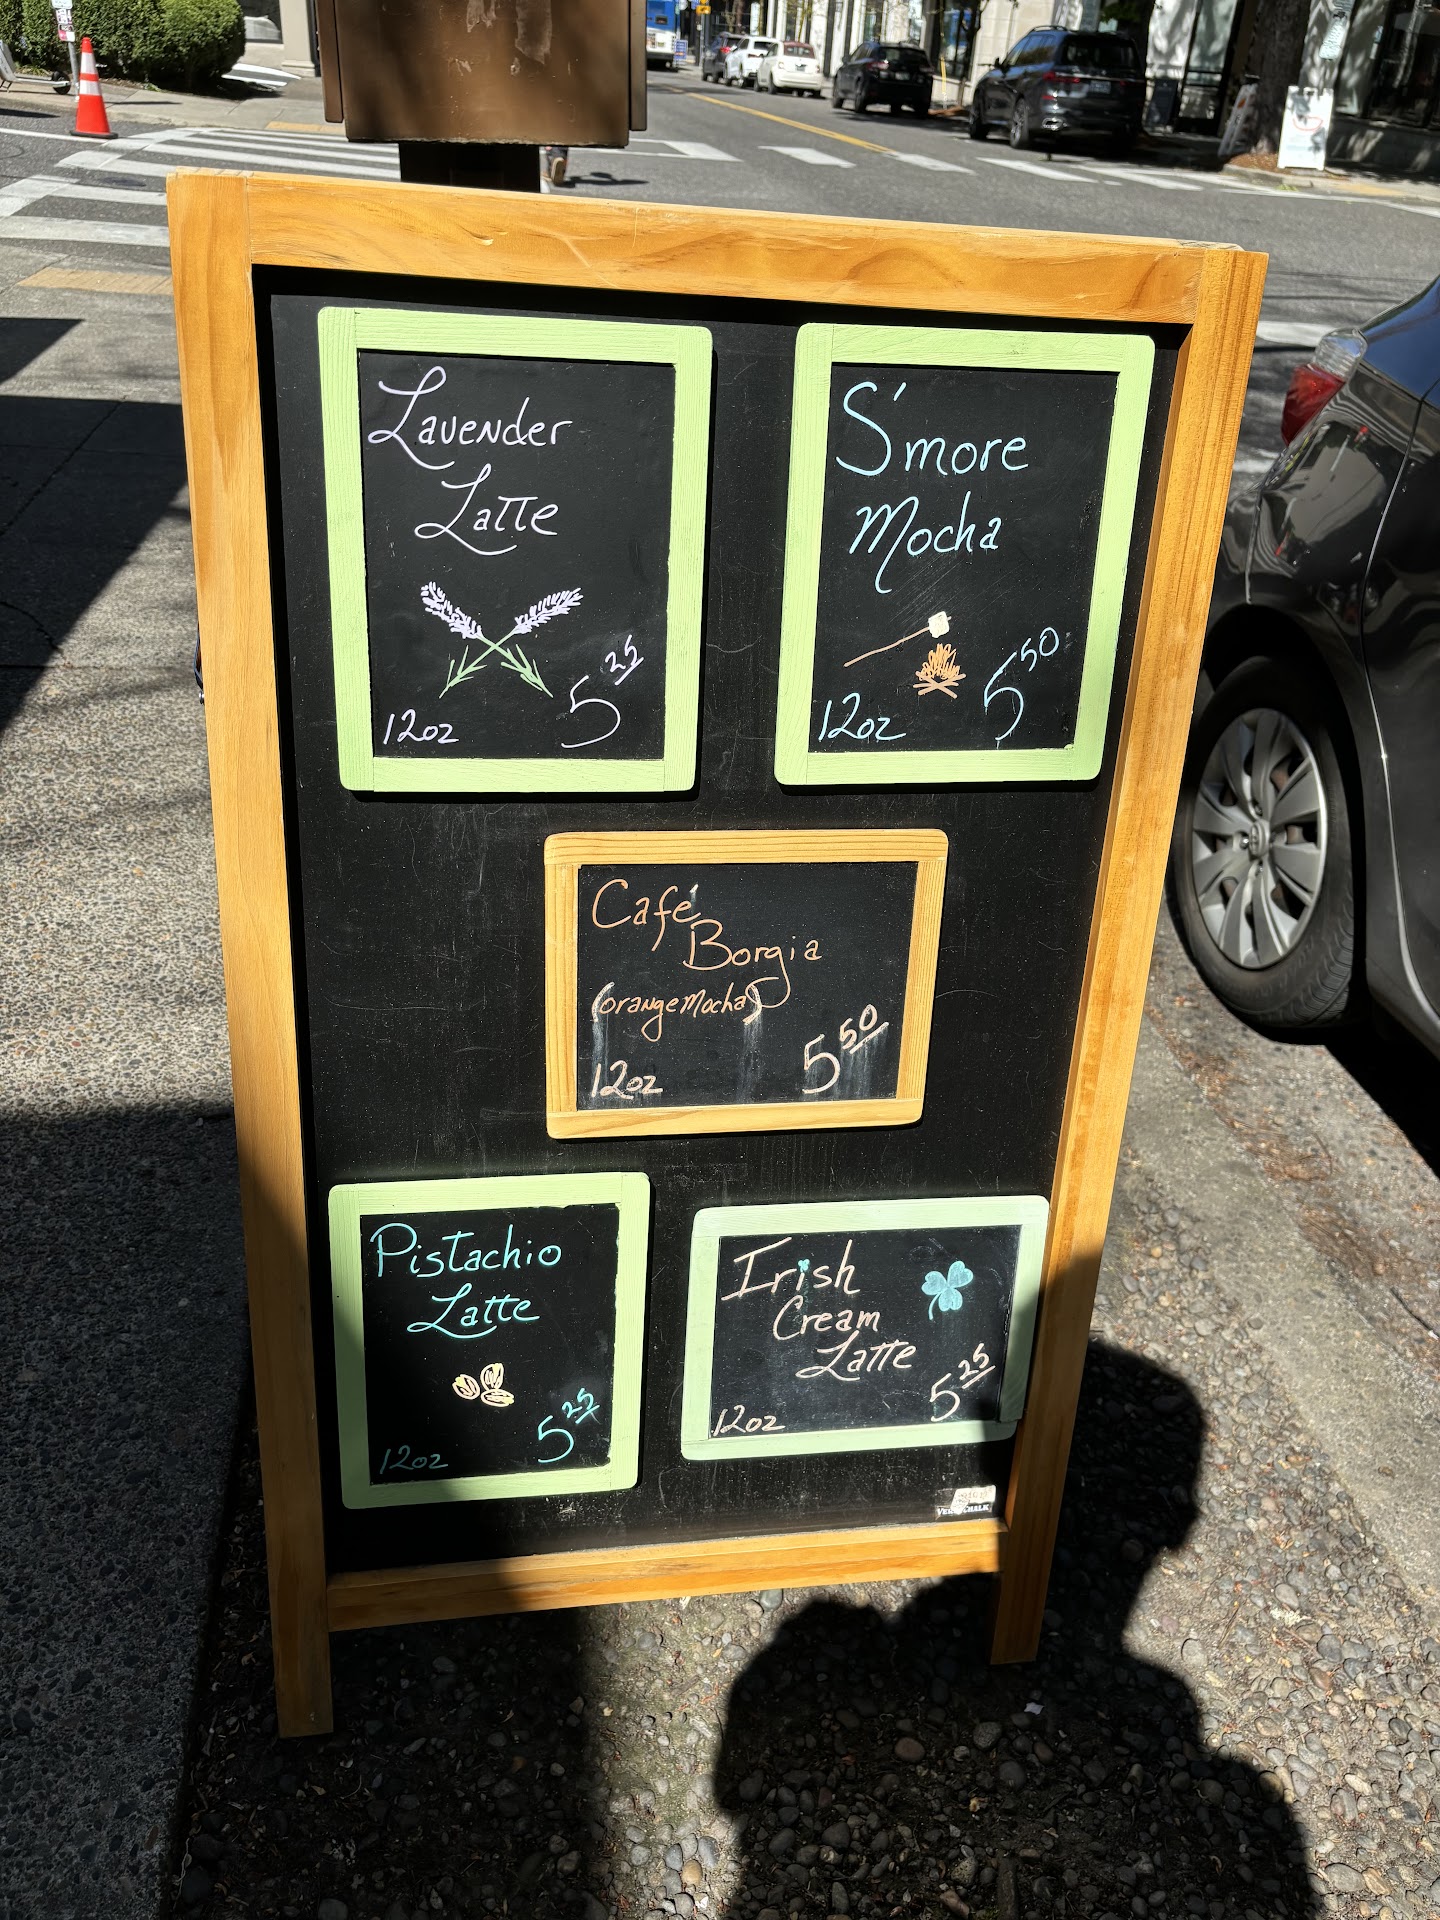 Lavender
Latte
12oz
5 25
S'more
Mocha
12oz
5 50
Café
Borgia
(orange Mocha)
12oz
5 50
Pistachio
Latte
12oz
5 25
Irish
Cream
Latte
12oz
5 25